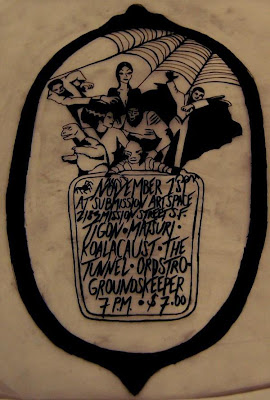 NOVEMBER 1ST
AT SUBMISSION ARTSPACE
2183 MISSION STREET S.F.
TIGON · MATSURI ·
KOALACAUST · THE
TUNNEL · ORDSTRO-
GROUNDSKEEPER
7 P.M. · $7.00